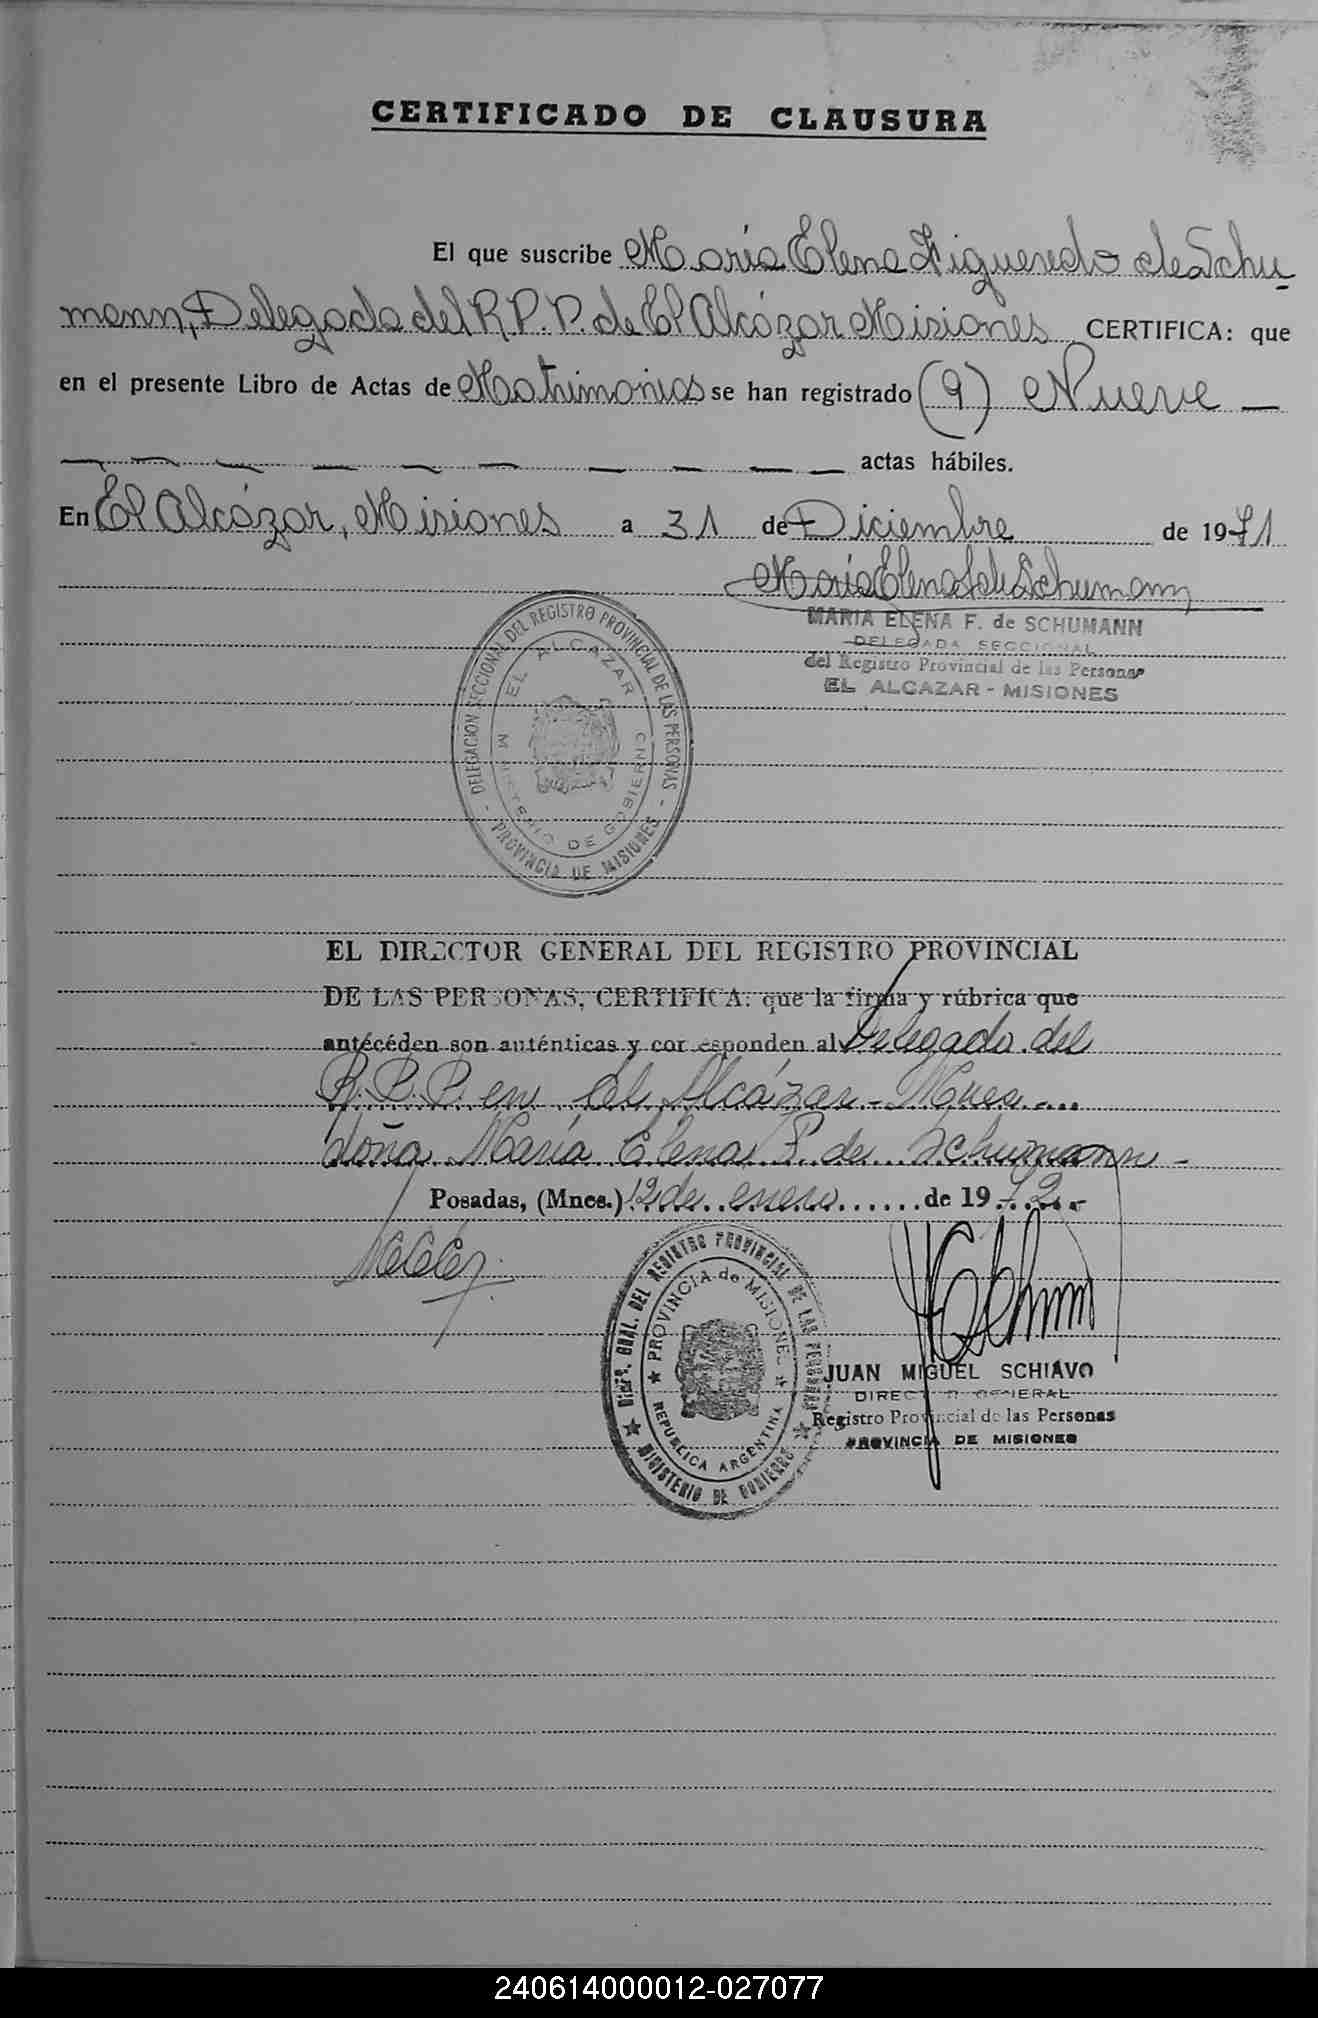 CERTIFICADO DE CLAUSURA
El que suscribe Maria Elena Figueredo de Schu-
mann, Delegada del R.P.P. de El Alcázar Misiones CERTIFICA: que
en el presente Libro de Actas de Matrimonios se han registrado (9) Nueve —
actas hábiles.
En El Alcázar, Misiones a 31 de Diciembre de 1971
Maria Elena F. de Schumann
MARIA ELENA F. de SCHUMANN
DELEGADA SECCIONAL
del Registro Provincial de las Personas
EL ALCAZAR - MISIONES
DELEGACION SECCIONAL DEL REGISTRO PROVINCIAL DE LAS PERSONAS
- PROVINCIA DE MISIONES -
EL ALCAZAR
MINISTERIO DE GOBIERNO
EL DIRECTOR GENERAL DEL REGISTRO PROVINCIAL
DE LAS PERSONAS, CERTIFICA: que la firma y rúbrica que
antécéden son auténticas y corresponden al Delegado del
R.P.P. en El Alcázar - Mnes -...
doña María Elena F. de Schumann -
Posadas, (Mnes.) 12 de enero de 1972.-
DIREC. GRAL. DEL REGISTRO PROVINCIAL DE LAS PERSONAS
★ MINISTERIO DE GOBIERNO ★
★ PROVINCIA de MISIONES ★
REPUBLICA ARGENTINA
JUAN MIGUEL SCHIAVO
DIRECTOR GENERAL
Registro Provincial de las Personas
PROVINCIA DE MISIONES
240614000012-027077